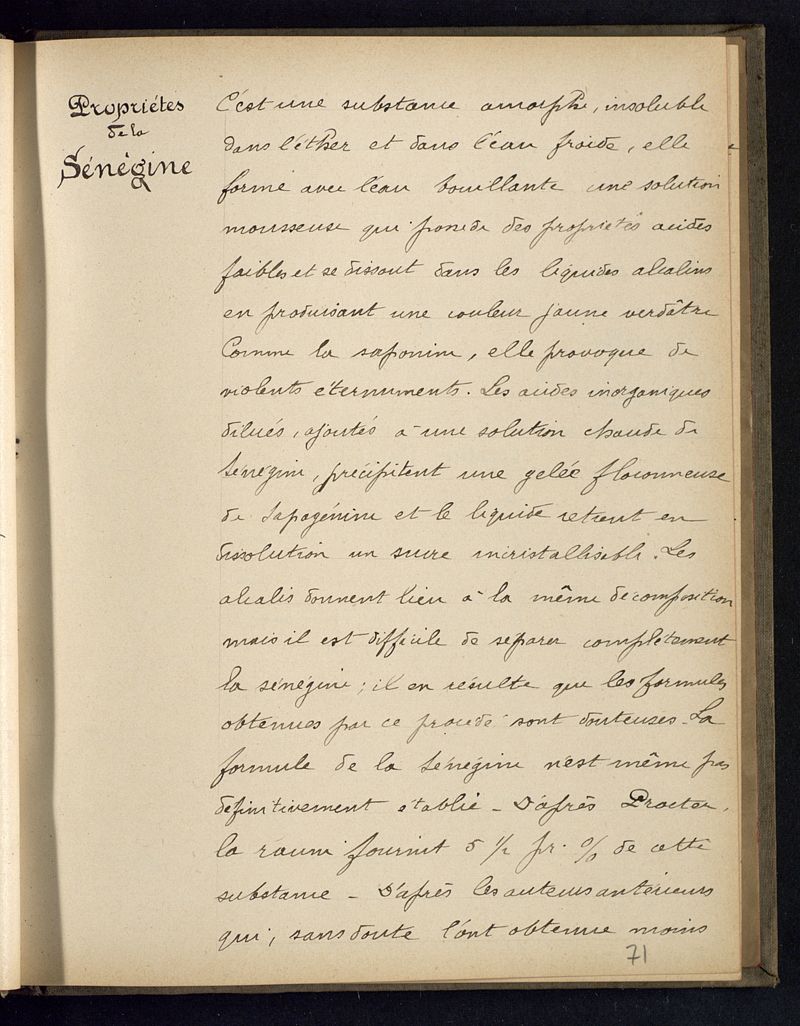 Propriétés
de la
Sénégine
C'est une substance amorphe, insoluble
dans l'éther et dans l'eau froide, elle
forme avec l'eau bouillante une solution
mousseuse qui possède des propriétés acides
faibles et se dissout dans les liquides alcalins
en produisant une couleur jaune verdâtre
Comme la saponine, elle provoque de
violents éternuments. Les acides inorganiques
dilués, ajoutés à une solution chaude de
sénégine, précipitent une gelée floconneuse
de sapogénine et le liquide retient en
dissolution un sucre incristallisable. Les
alcalis donnent lieu à la même décomposition
mais il est difficile de séparer complètement
la sénégine ; il en résulte que les formules
obtenues par ce procédé sont douteuses. La
formule de la sénégine n'est même pas
définitivement établie – D'après Procter,
la racine fournit 5 1/2 pr. % de cette
substance – D'après les auteurs antérieurs
qui, sans doute l'ont obtenue moins
71